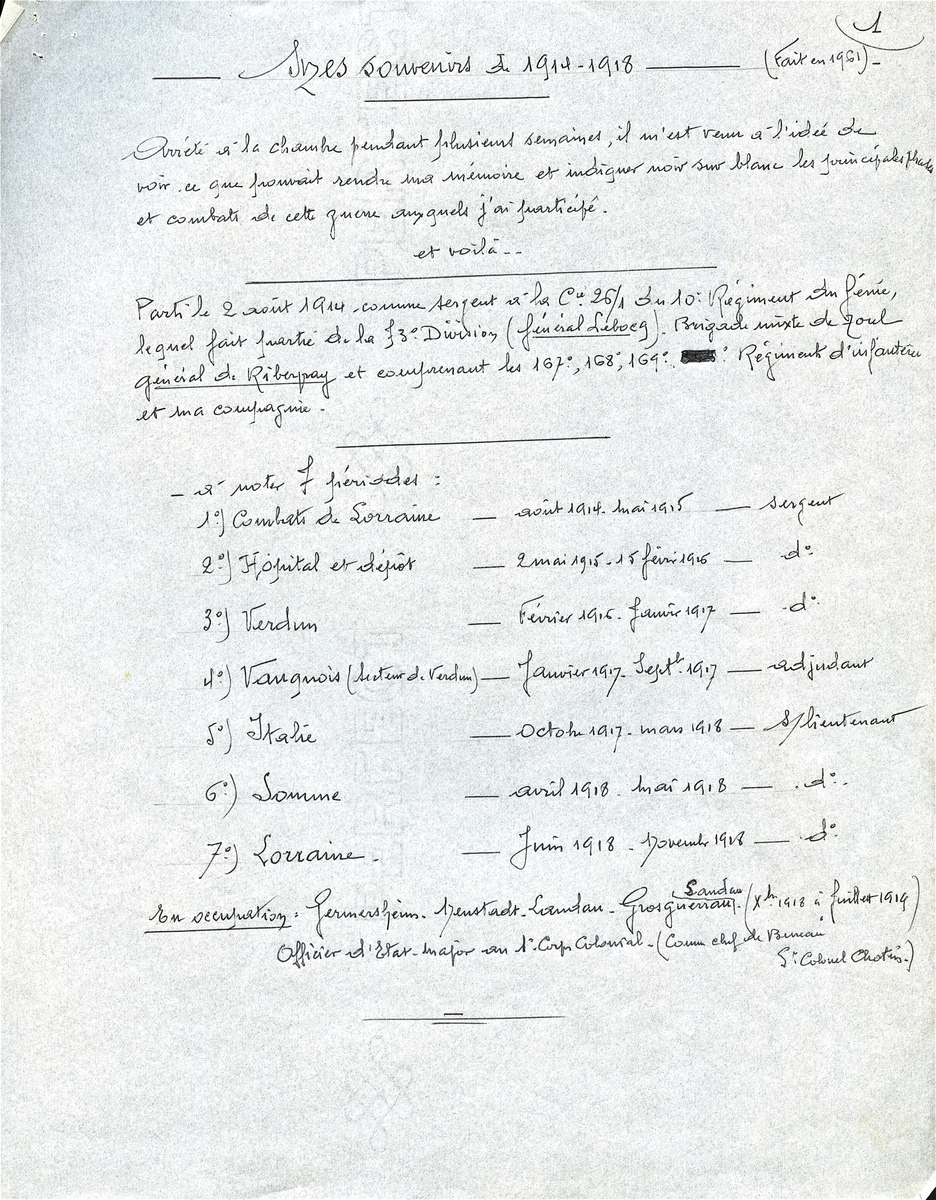 1
Mes souvenirs de 1914-1918 (Fait en 1961)-
Arrêté à la chambre pendant plusieurs semaines, il m'est venu à l'idée de
voir ce que pouvait rendre ma mémoire et indiquer noir sur blanc les principales phases
et combats de cette guerre auxquels j'ai participé.
et voilà--
Parti le 2 août 1914 comme sergent à la Cie 26/1 du 10e Régiment du Génie,
lequel fait partie de la 73e Division (général Lebocq). Brigade mixte de Toul
général de Riberpray et comprenant les 167e, 168e, 169e Régiment d'infanterie
et ma compagnie.
- à noter 7 périodes :
1°) Combats de Lorraine — août 1914. mai 1915 — sergent
2°) Hôpital et dépôt — 2 mai 1915. 15 févr 1916 — d°
3°) Verdun — Février 1916. Janvr 1917 — d°
4°) Vauquois (secteur de Verdun) — Janvier 1917. Septbre 1917 — adjudant
5°) Italie — Octobre 1917. mars 1918 — S/lieutenant
6°) Somme — avril 1918. mai 1918 — d°.
7°) Lorraine. — Juin 1918 - Novembre 1918 — d°
En occupation : Germersheim. Neustadt. Landau. (Xbre 1918 à Juillet 1919)
Landau
Officier d'Etat-major au 1er Corps Colonial. (Comm chef de Bureau
Lt Colonel)